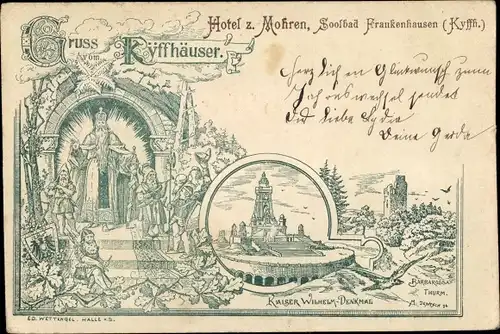 Gruss vom Kyffhäuser.
Hotel z. Mohren, Soolbad Frankenhausen (Kyffh.)
Herzlichen Glückwunsch zum
sendet
Dir liebe Lydia
Deine Gerda
Kaiser Wilhelm-Denkmal
Barbarossa-
Thurm.
Ed. Wettengel. Halle a/S.